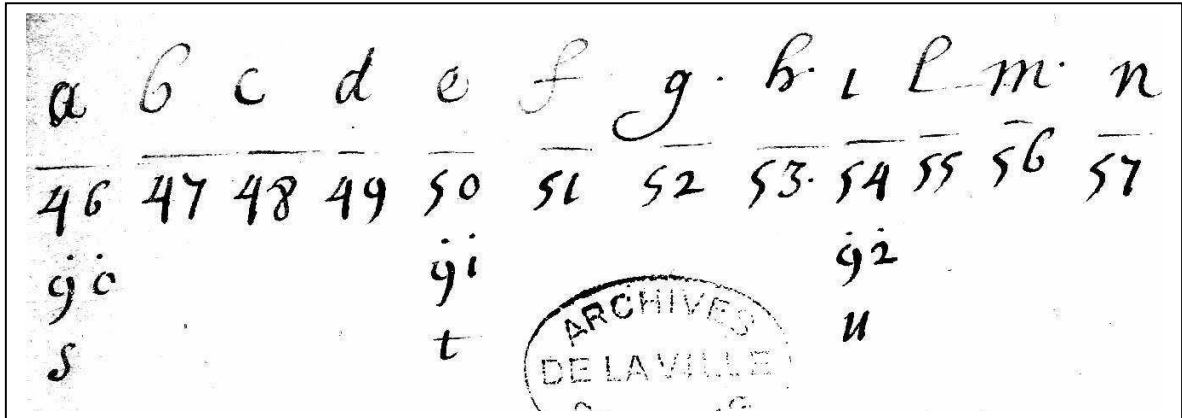 a b c d e f g. h. i l m. n
46 47 48 49 50 51 52 53. 54 55 56 57
ġȯ ġi ġ2̇
s t u
ARCHIVES
DE LA VILLE